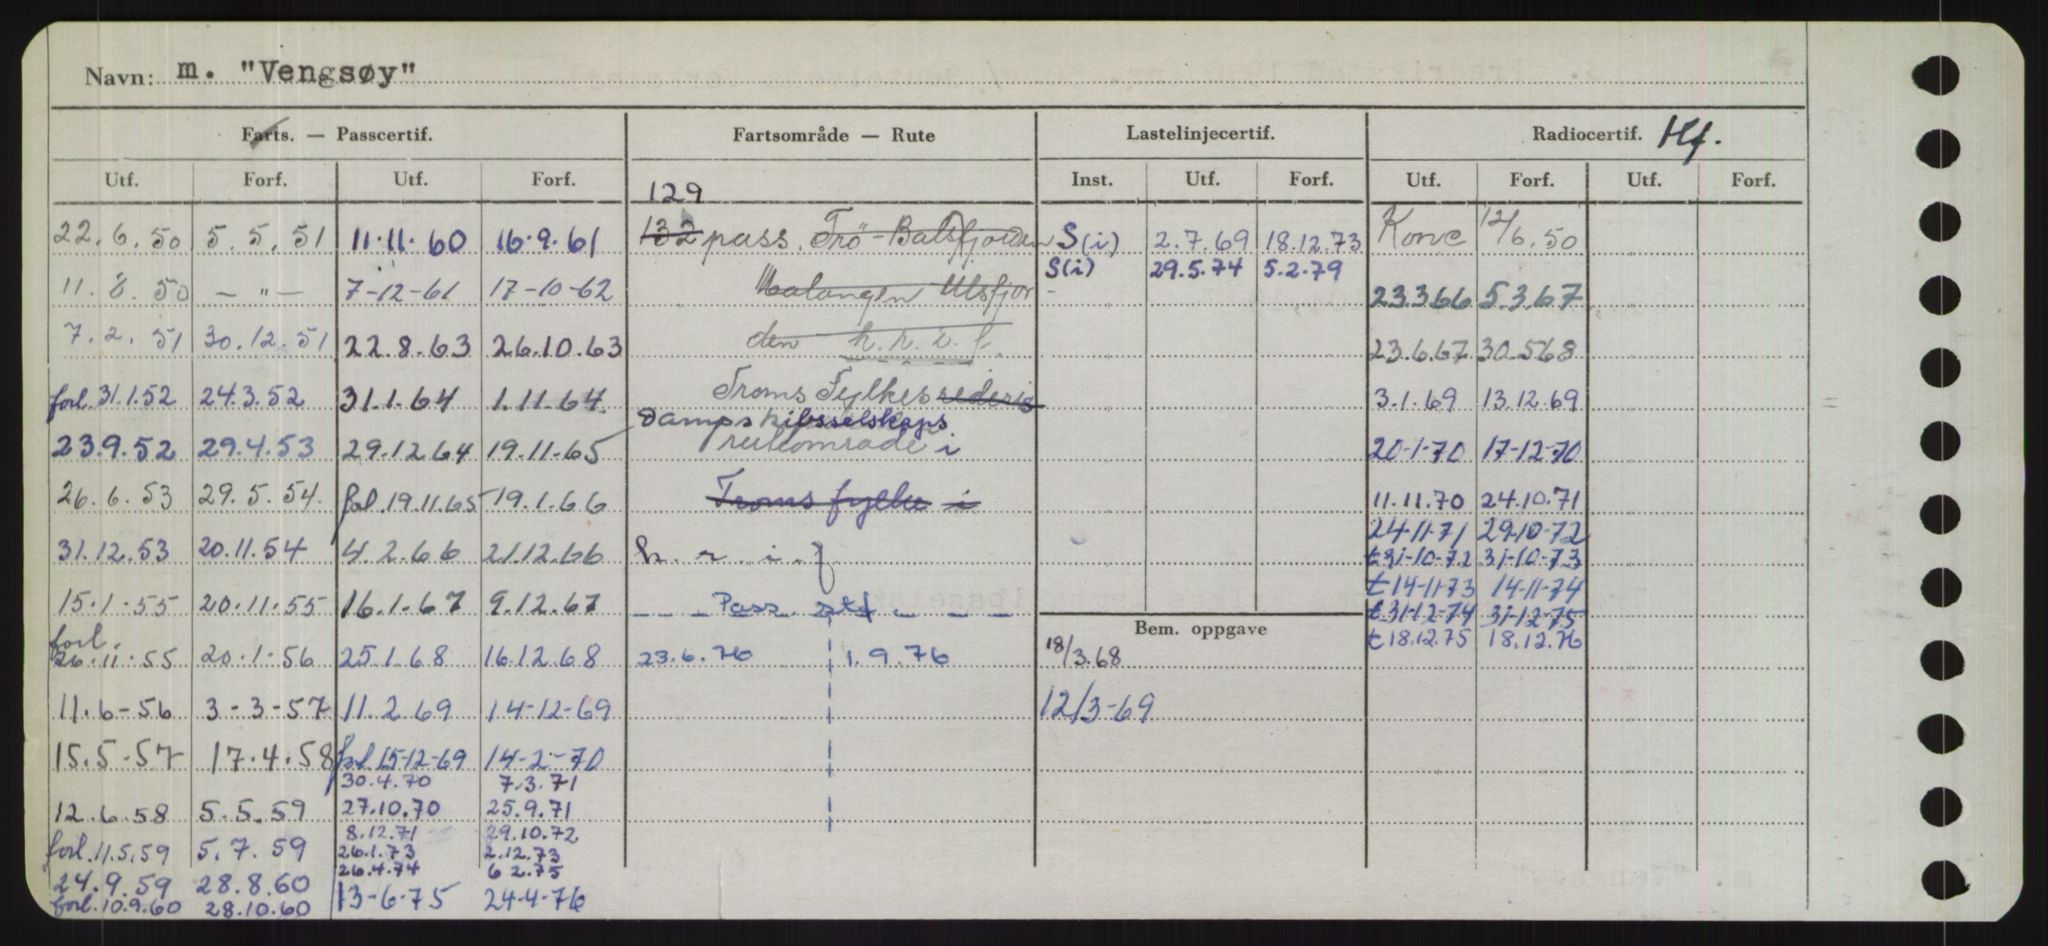 Navn: m. "Vengsøy"
Farts. — Passcertif. Fartsområde — Rute Lastelinjecertif. Radiocertif. Hf.
Utf. Forf. Utf. Forf. Inst. Utf. Forf. Utf. Forf. Utf. Forf.
129
22.6.50 5.5.51 11.11.60 16.9.61 132 pass. Trö-Balsfjorden S(i) 2.7.69 18.12.73 Konc 12/6.50
S(i) 29.5.74 5.2.79
11.8.50 — " — 7-12-61 17-10-62 Malangen Ulsfjor 23.3.66 5.3.67
7.2.51 30.12.51 22.8.63 26.10.63 den h.r.i.f. 23.6.67 30.5.68
forl. 31.1.52 24.3.52 31.1.64 1.11.64 Troms Fylkes rederis 3.1.69 13.12.69
Dampskibsselskaps
23.9.52 29.4.53 29.12.64 19.11.65 ruteområde i 20-1-70 17-12-70
26.6.53 29.5.54. fol. 19.11.65 19.1.66 Troms fylke i 11.11.70 24.10.71
24-11-71 29-10-72
31.12.53 20.11.54 4.2.66 21.12.66 h.r.i.f t 31-10-72 31-10-73
t 14-11-73 14-11-74
15.1.55 20.11.55 16.1.67 9.12.67 — — Pass. stf — — — t 31-12-74 31-12-75
Bem. oppgave t 18.12.75 18.12.76
forl.
26.11.55 20.1.56 25.1.68 16.12.68 23.6.76 1.9.76 18/3.68
11.6-56 3-3-57 11.2.69 14-12-69 12/3-69
15.5-57 17.4.58 fol 15-12-69 14-2-70
30.4.70 7.3.71
12.6.58 5.5.59 27.10.70 25.9.71
8.12.71 29.10.72
forl. 11.5.59 5.7.59 26.1.73 2.12.73
26.4.74 6 2.75
24.9.59 28.8.60 13-6-75 24-4-76
forl. 10.9.60 28.10.60